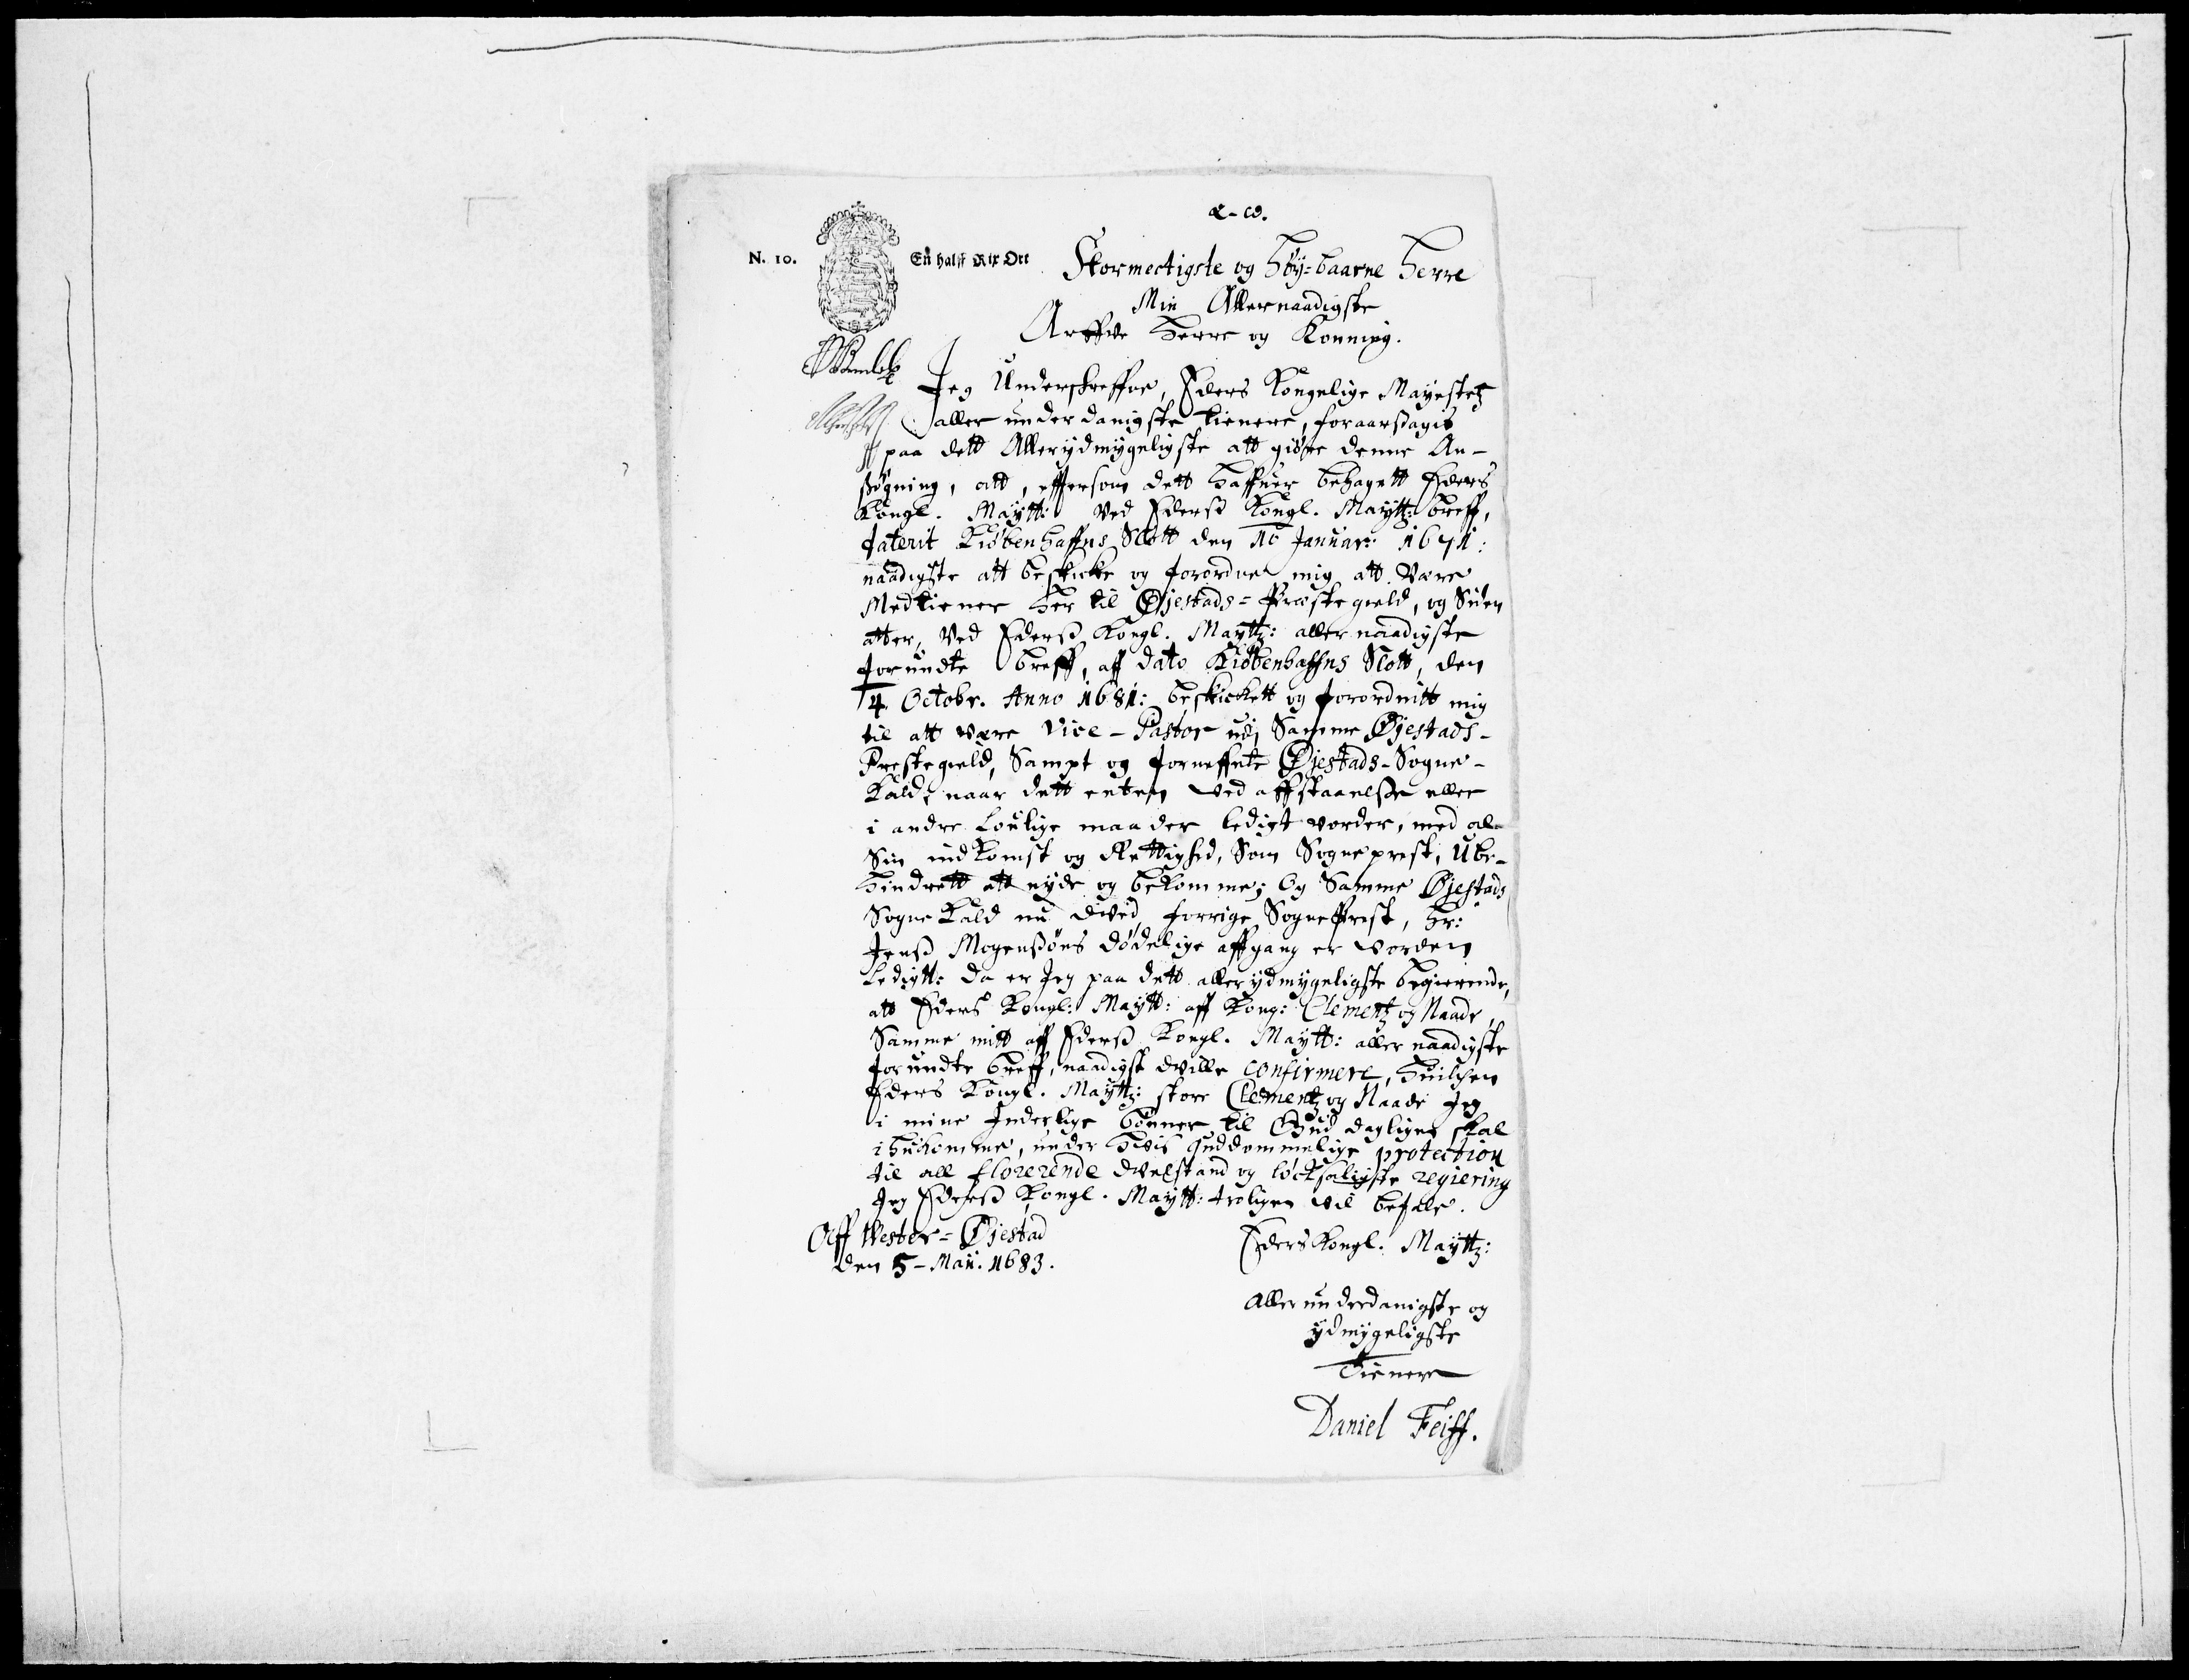 α-ω.
N. 10.
En halff Rix Ort
Stormectigste og Höy=baarne Herre
Min Allernaadigste
Arffve Herre og Konning.
Jeg Underskreffne, Eders Kongelige Mayestetz
aller underdanigste tienere, foraarsagis
paa dett Allerydmygeligste att giöre denne An-
ßögning, att, effersom dett haffuer behagett Eders
Kongl. Maytt: Ved Ederß Kongl. Mayttz: breff,
daterit Kiöbenhaffns Slott den 10 Januar: 1671:
naadigste att beskicke og forordne mig att være
Medtiener her til Øjestads=Præstegield, og Siden
atter, Ved Ederß Kongl. Mayttz: allernaadigste
forundte breff, aff dato Kiöbenhaffns Slott, den
4. Octobr. Anno 1681: beskickett og forordnitt mig
til att være Vice-Pastor udj Samme Øjestads-
Prestegield, Sampt og forneffnte Øjestads-Sogne-
Kald, naar dett enten ved affstaaelße eller
i andre loulige maader ledigt vorder, med al-
Sin indkomst og Rettighed, Som Sogneprest, Ube-
hindrett att nyde og bekomme; Og Samme Øjestads
Sogne Kald nu ved forrige SognePrest, Hr:
Jenß Mogenßöns dödelige affgang er vorden
Ledigtt: da er Jeg paa dett allerydmygeligste begierende,
att Eders Kongl: Maytt: aff Kong: Clementz og Naade,
Samme mitt aff Ederß Kongl. Maytt: allernaadigste
forundte breff, naadigst ville confirmere, Huilchen
Eders Kongl. Mayttz: store Clementz og Naade Jeg
i mine Inderlige bönner til Gud dagligen skal
ihukomme, under Hvis guddommelige protection
til all florerende velstand og löcksaligste regiering
Jeg Ederß Kongl. Maytt: troligen vil befale.
Aff Wester=Øjestad
den 5-Maii. 1683.
Eders Kongl. Mayttz:
Allerunderdanigste og
ydmygeligste
Tienere
Daniel Feiff.